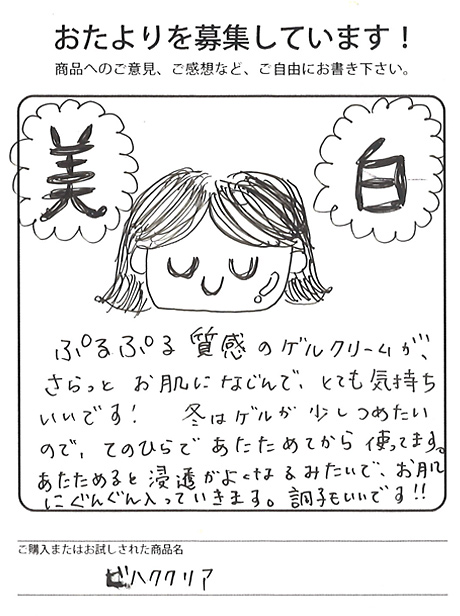 おたよりを募集しています！
商品へのご意見、ご感想など、ご自由にお書き下さい。
美 白
ぷるぷる質感のゲルクリームが、
さらっと お肌になじんで、とても気持ち
いいです！ 冬はゲルが少しつめたい
ので、てのひらであたためてから使ってます。
あたためると浸透がよくなるみたいで、お肌
にぐんぐん入っていきます。調子もいいです!!
ご購入またはお試しされた商品名
ビハククリア